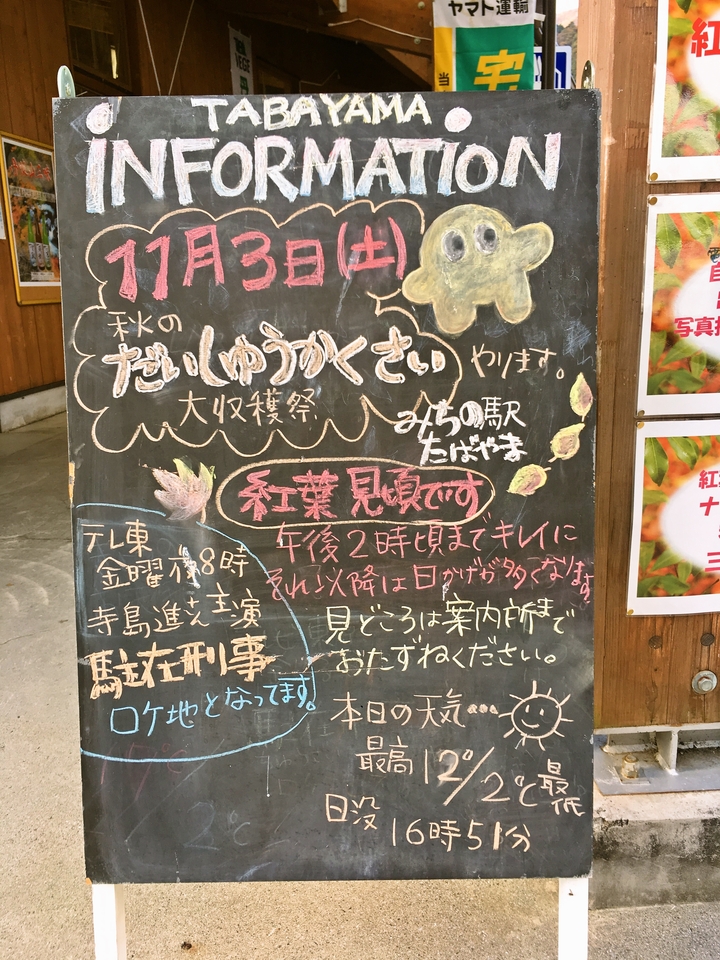 ヤマト運輸
宅
当
TABAYAMA
INFORMATION
11月3日(土)
秋の
だいしゅうかくさい
大収穫祭
やります。
みちの駅
たばやま
紅葉 見頃です
午後2時頃までキレイに
それ以降は日かげが多くなります。
見どころは案内所まで
おたずねください。
テレ東
金曜夜8時
寺島進さん主演
駐在刑事
ロケ地となってます。
本日の天気…
最高 12℃/2℃ 最低
日没 16時51分
紅
自
写真
紅
ナ
三